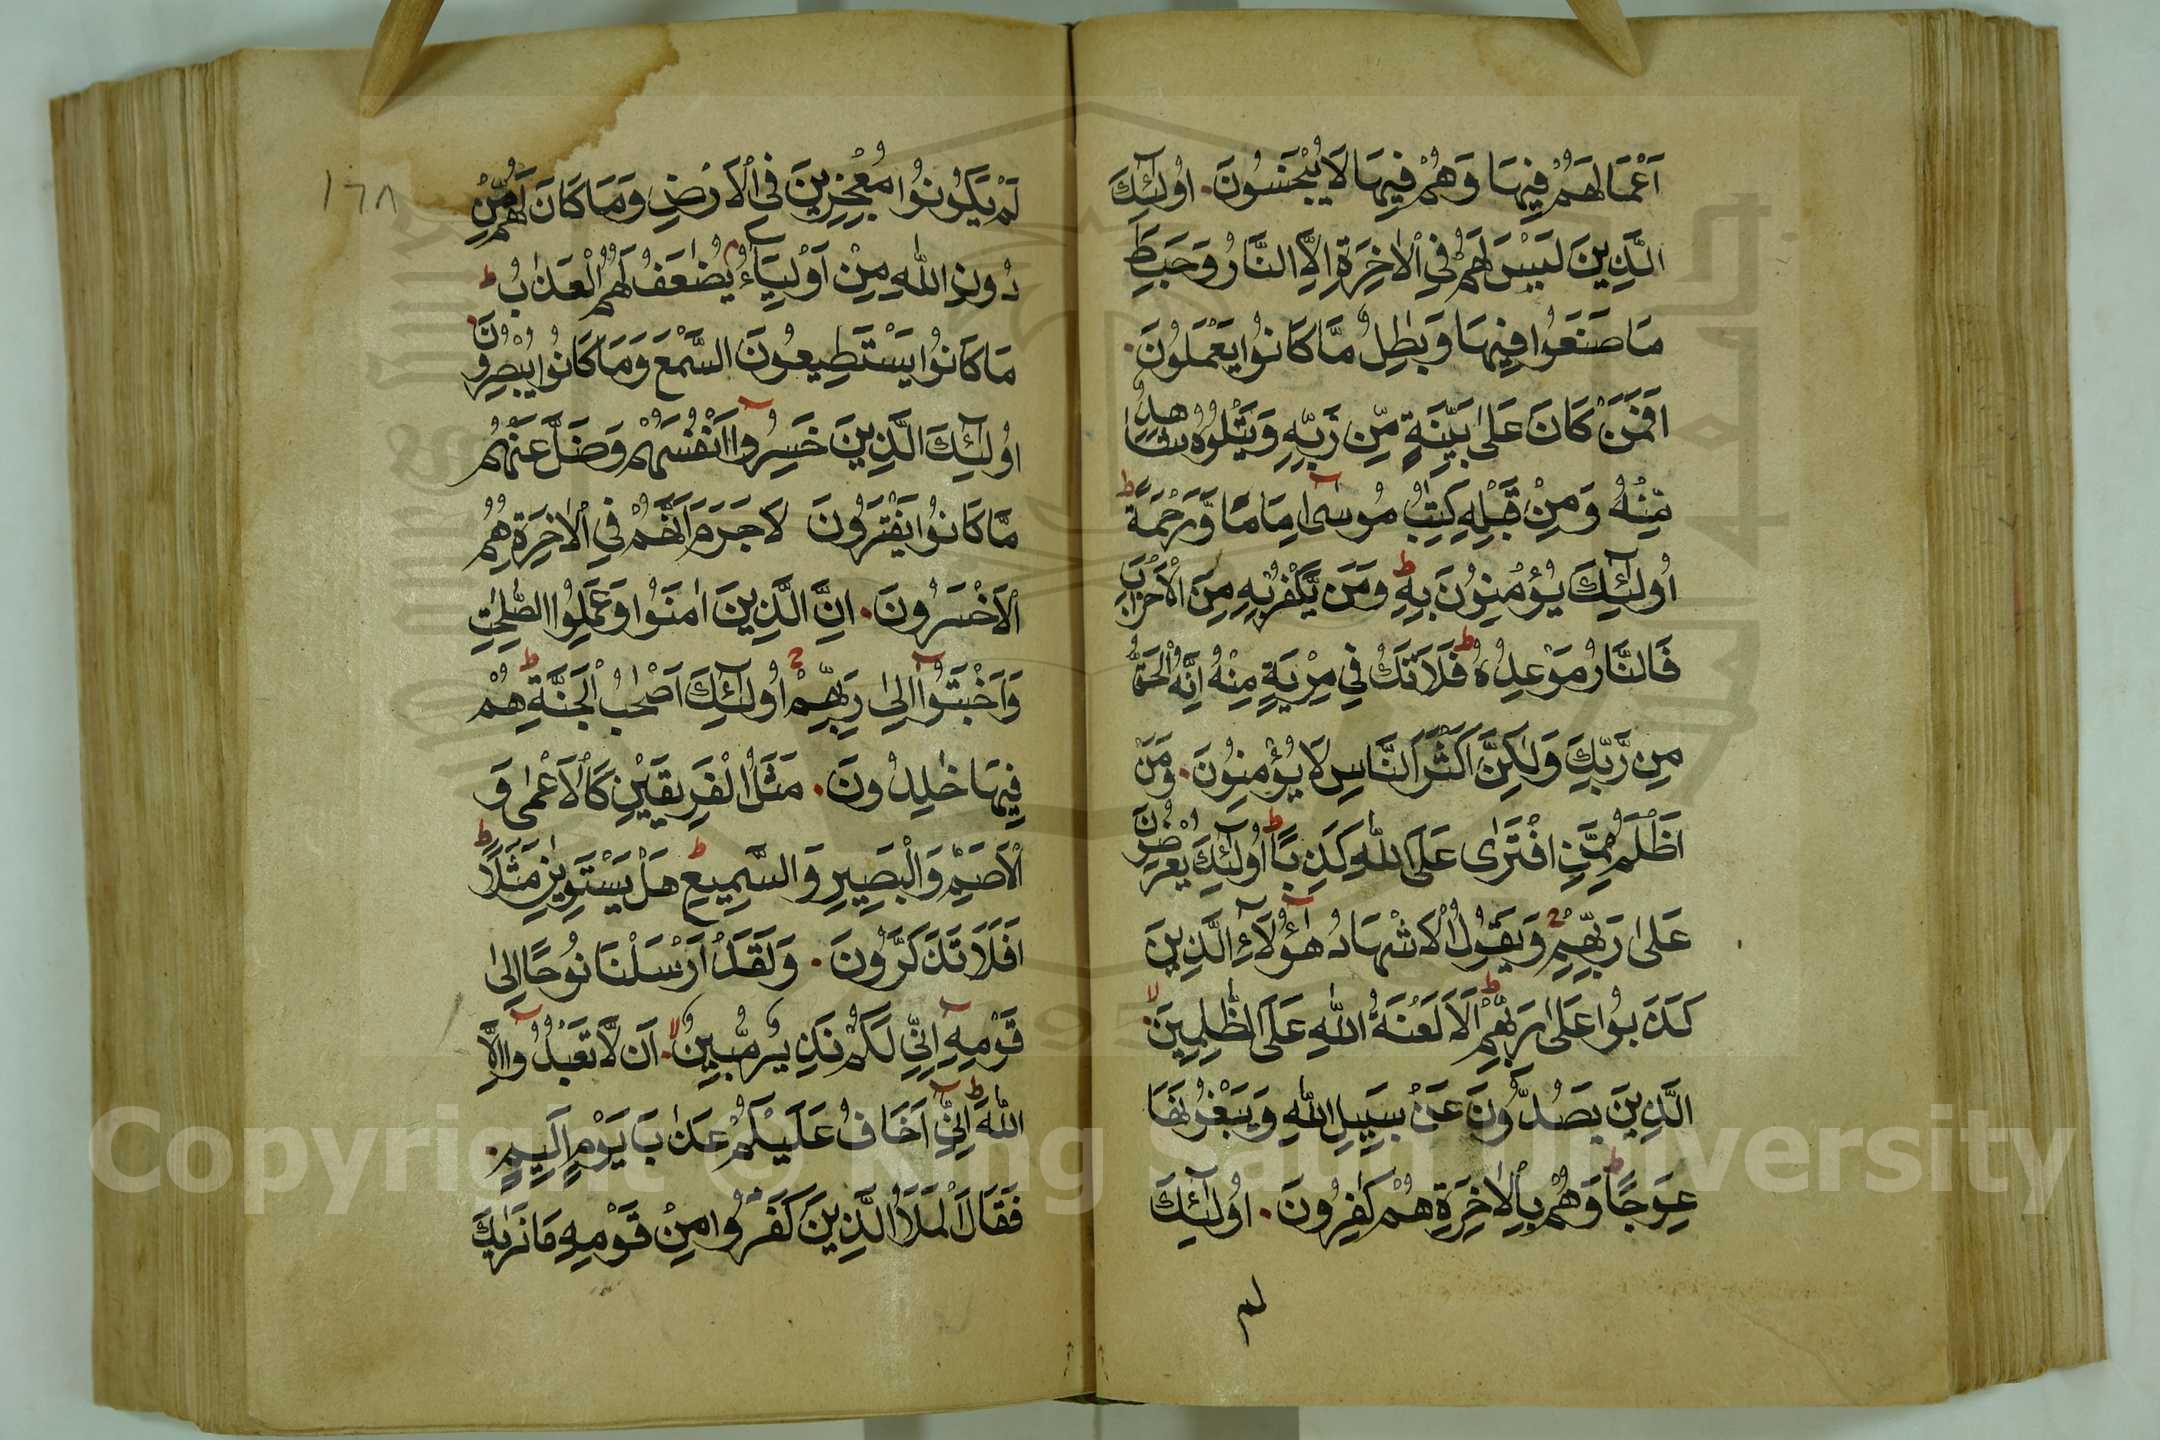 اَعْمَالَهُمْ فِيهَا وَهُمْ فِيهَا لَا يُبْخَسُونَ. اُولٰٓئِكَ
الَّذِينَ لَيْسَ لَهُمْ فِي الْاٰخِرَةِ اِلَّا النَّارُ وَحَبِطَ
مَا صَنَعُوا فِيهَا وَبٰطِلٌ مَّا كَانُوا يَعْمَلُونَ.
اَفَمَنْ كَانَ عَلٰى بَيِّنَةٍ مِّن رَّبِّهِ وَيَتْلُوهُ شَاهِدٌ
مِّنْهُ وَمِنْ قَبْلِهِ كِتٰبُ مُوسٰٓى اِمَامًا وَّرَحْمَةً ط
اُولٰٓئِكَ يُؤْمِنُونَ بِهِ ط وَمَن يَّكْفُرْ بِهِ مِنَ الْاَحْزَابِ
فَالنَّارُ مَوْعِدُهُ ط فَلَا تَكُ فِي مِرْيَةٍ مِنْهُ اِنَّهُ الْحَقُّ
مِن رَّبِّكَ وَلٰكِنَّ اَكْثَرَ النَّاسِ لَا يُؤْمِنُونَ. وَمَنْ
اَظْلَمُ مِمَّنِ افْتَرٰى عَلَى اللّٰهِ كَذِبًا ط اُولٰٓئِكَ يُعْرَضُونَ
عَلٰى رَبِّهِمْ وَيَقُولُ الْاَشْهَادُ هٰٓؤُلَآءِ الَّذِينَ
كَذَبُوا عَلٰى رَبِّهِمْ ط اَلَا لَعْنَةُ اللّٰهِ عَلَى الظّٰلِمِينَ. لا
الَّذِينَ يَصُدُّونَ عَنْ سَبِيلِ اللّٰهِ وَيَبْغُونَهَا
عِوَجًا ط وَهُمْ بِالْاٰخِرَةِ هُمْ كٰفِرُونَ. اُولٰٓئِكَ
لم
١٦٨
لَمْ يَكُونُوا مُعْجِزِينَ فِي الْاَرْضِ وَمَا كَانَ لَهُمْ مِّنْ
دُونِ اللّٰهِ مِنْ اَوْلِيَآءَ م يُضٰعَفُ لَهُمُ الْعَذٰبُ ط
مَا كَانُوا يَسْتَطِيعُونَ السَّمْعَ وَمَا كَانُوا يُبْصِرُونَ.
اُولٰٓئِكَ الَّذِينَ خَسِرُوٓا اَنْفُسَهُمْ وَضَلَّ عَنْهُمْ
مَّا كَانُوا يَفْتَرُونَ لَا جَرَمَ اَنَّهُمْ فِي الْاٰخِرَةِ هُمُ
الْاَخْسَرُونَ. اِنَّ الَّذِينَ اٰمَنُوا وَعَمِلُوا الصّٰلِحٰتِ
وَاَخْبَتُوٓا اِلٰى رَبِّهِمْ اُولٰٓئِكَ اَصْحٰبُ الْجَنَّةِ ط هُمْ
فِيهَا خٰلِدُونَ. مَثَلُ الْفَرِيقَيْنِ كَالْاَعْمٰى وَ
الْاَصَمِّ وَالْبَصِيرِ وَالسَّمِيعِ ط هَلْ يَسْتَوِيٰنِ مَثَلًا ط
اَفَلَا تَذَكَّرُونَ. وَلَقَدْ اَرْسَلْنَا نُوحًا اِلٰى
قَوْمِهِٓ اِنِّي لَكُمْ نَذِيرٌ مُّبِينٌ. لا اَن لَّا تَعْبُدُوٓا اِلَّا
اللّٰهَ ط اِنِّيٓ اَخَافُ عَلَيْكُمْ عَذٰبَ يَوْمٍ اَلِيمٍ.
فَقَالَ الْمَلَاُ الَّذِينَ كَفَرُوا مِنْ قَوْمِهِ مَا نَرٰيكَ
Copyright © King Saud University